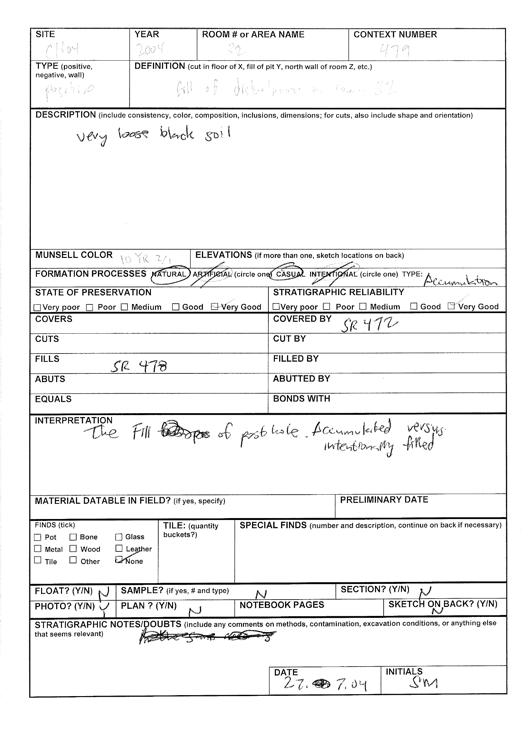 SITE YEAR ROOM # or AREA NAME CONTEXT NUMBER
2004 32 479
TYPE (positive, negative, wall) DEFINITION (cut in floor of X, fill of pit Y, north wall of room Z, etc.)
positive fill of
DESCRIPTION (include consistency, color, composition, inclusions, dimensions; for cuts, also include shape and orientation)
very loose black soil
MUNSELL COLOR 10 YR 2/1 ELEVATIONS (if more than one, sketch locations on back)
FORMATION PROCESSES NATURAL / ARTIFICIAL (circle one) CASUAL INTENTIONAL (circle one) TYPE: Accumulation
STATE OF PRESERVATION STRATIGRAPHIC RELIABILITY
Very poor Poor Medium Good Very Good Very poor Poor Medium Good Very Good
COVERS COVERED BY SR 472
CUTS CUT BY
FILLS SR 478 FILLED BY
ABUTS ABUTTED BY
EQUALS BONDS WITH
INTERPRETATION
The Fill of posthole. Accumulated versus
intentionally filled
MATERIAL DATABLE IN FIELD? (if yes, specify) PRELIMINARY DATE
FINDS (tick) TILE: (quantity buckets?) SPECIAL FINDS (number and description, continue on back if necessary)
Pot Bone Glass
Metal Wood Leather
Tile Other None
FLOAT? (Y/N) N SAMPLE? (if yes, # and type) N SECTION? (Y/N) N
PHOTO? (Y/N) Y PLAN ? (Y/N) N NOTEBOOK PAGES SKETCH ON BACK? (Y/N) N
STRATIGRAPHIC NOTES/DOUBTS (include any comments on methods, contamination, excavation conditions, or anything else
that seems relevant)
DATE INITIALS
27. 7.04 SM